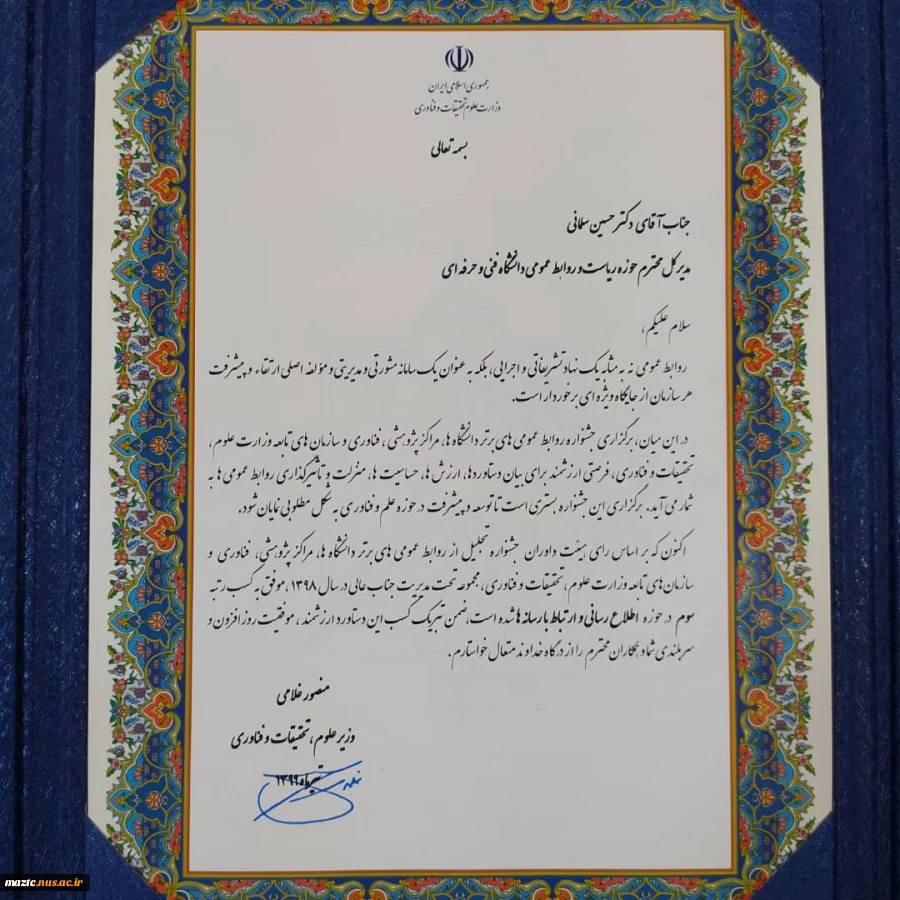 جمهوری اسلامی ایران
وزارت علوم تحقیقات و فناوری
بسمه تعالی
جناب آقای دکتر حسین سلمانی
مدیر کل محترم حوزه ریاست و روابط عمومی دانشگاه فنی و حرفه ای
سلام علیکم،
روابط عمومی نه به مثابه یک نهاد تشریفاتی و اجرایی، بلکه به عنوان یک سامانه مشورتی و مدیریتی و مؤلفه اصلی ارتقاء و پیشرفت
هر سازمان از جایگاه ویژه ای برخوردار است.
در این میان، برگزاری جشنواره روابط عمومی های برتر دانشگاه ها، مراکز پژوهشی، فناوری و سازمان های تابعه وزارت علوم،
تحقیقات و فناوری، فرصتی ارزشمند برای بیان دستاوردها، ارزش ها، حساسیت ها، منزلت و تاثیرگذاری روابط عمومی ها به
شمار می آید. برگزاری این جشنواره بستری است تا توسعه و پیشرفت در حوزه علم و فناوری به شکل مطلوبی نمایان شود.
اکنون که بر اساس رای هیئت داوران جشنواره تجلیل از روابط عمومی های برتر دانشگاه ها، مراکز پژوهشی، فناوری و
سازمان های تابعه وزارت علوم، تحقیقات و فناوری، مجموعه تحت مدیریت جناب عالی در سال ۱۳۹۸، موفق به کسب رتبه
سوم در حوزه اطلاع رسانی و ارتباط با رسانه ها شده است، ضمن تبریک کسب این دستاورد ارزشمند، موفقیت روزافزون و
سربلندی شما و همکاران محترم را از درگاه خداوند متعال خواستارم.
منصور غلامی
وزیر علوم، تحقیقات و فناوری
تیرماه ۱۳۹۹
maztc.nus.ac.ir